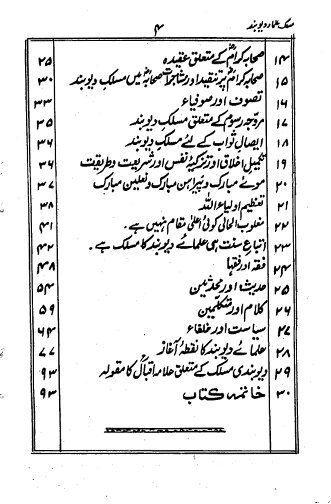 مسلک علماء دیوبند
۴
۱۴ صحابہ کرامؓ کے متعلق عقیدہ ۲۵
۱۵ صحابہ کرامؓ پر تنقید اور مشاجرات صحابہؓ میں مسلک دیوبند ۳۰
۱۶ تصوف اور صوفیاء ۳۳
۱۷ مروجہ رسوم کے متعلق مسلک دیوبند ۳۵
۱۸ ایصال ثواب کے لئے مسلک دیوبند ۳۶
۱۹ تکمیل اخلاق اور تزکیۂ نفس اور شریعت و طریقت ۳۶
۲۰ موئے مبارک و پیراہن مبارک و نعلین مبارک ۳۷
۲۱ تعظیم اولیاء اللہ ۳۸
۲۲ مغلوب الحالی کوئی اعلیٰ مقام نہیں ہے۔ ۴۱
۲۳ اتباع سنت ہی علمائے دیوبند کا مسلک ہے۔ ۴۲
۲۴ فقہ اور فقہا ۴۸
۲۵ حدیث اور محدثین ۵۴
۲۶ کلام اور متکلمین ۵۹
۲۷ سیاست اور خلفاء ۶۴
۲۸ علمائے دیوبند کا نقطۂ آغاز ۷۷
۲۹ دیوبندی مسلک کے متعلق علامہ اقبالؒ کا مقولہ ۹۳
۳۰ خاتمہ کتاب ۹۳